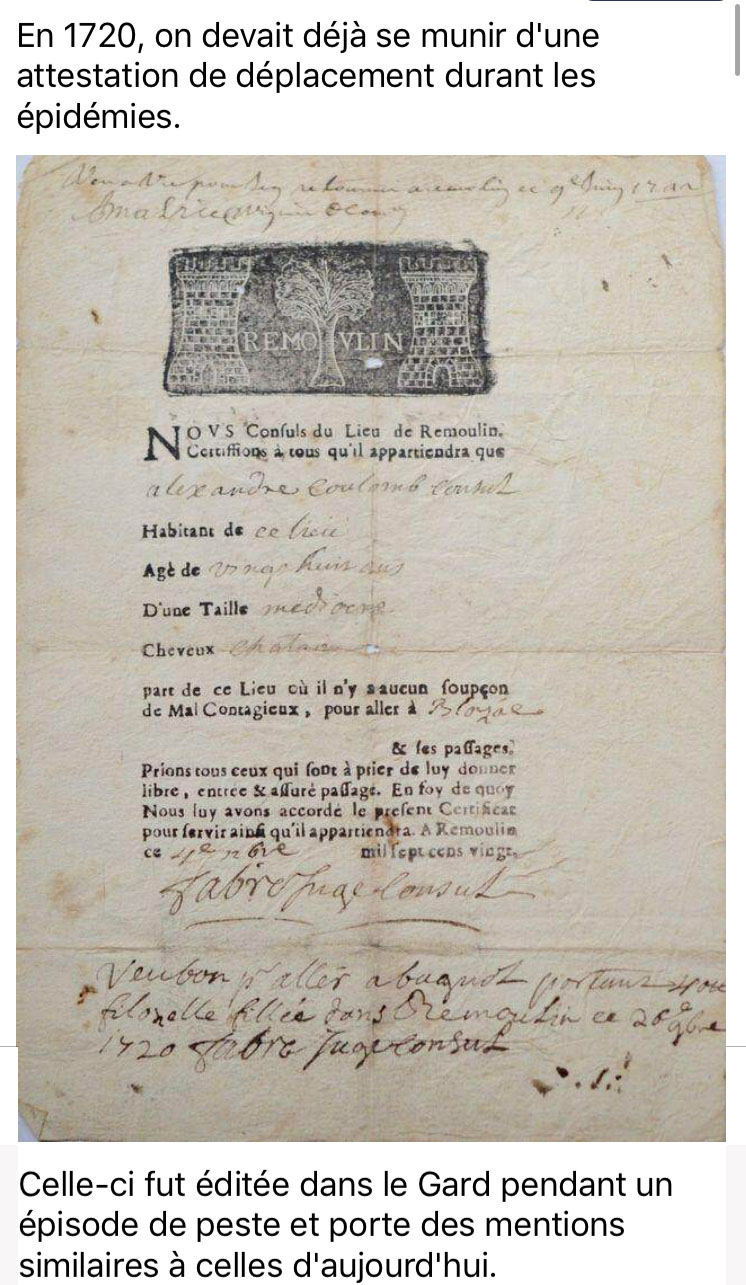 En 1720, on devait déjà se munir d'une
attestation de déplacement durant les
épidémies.
REMOVLIN
NOVS Conſuls du Lieu de Remoulin.
Certiffions à tous qu'il appartiendra que
alexandre Coulomb Consul
Habitant de ce lieu
Agè de vingt huit ans
D'une Taille mediocre
Cheveux chatain
part de ce Lieu où il n'y a aucun ſoupçon
de Mal Contagieux, pour aller à Blozac
& ſes paſſages.
Prions tous ceux qui ſont à prier de luy donner
libre, entrée & aſſuré paſſage. En foy de quoy
Nous luy avons accordé le preſent Certificat
pour ſervir ainſi qu'il appartiendra. A Remoulin
ce mil ſept cens vingt.
fabre Juge Consul
Veu bon pr aller a portant
filozelle fillée dans Remoulin ce
1720 fabre Juge Consul
Celle-ci fut éditée dans le Gard pendant un
épisode de peste et porte des mentions
similaires à celles d'aujourd'hui.